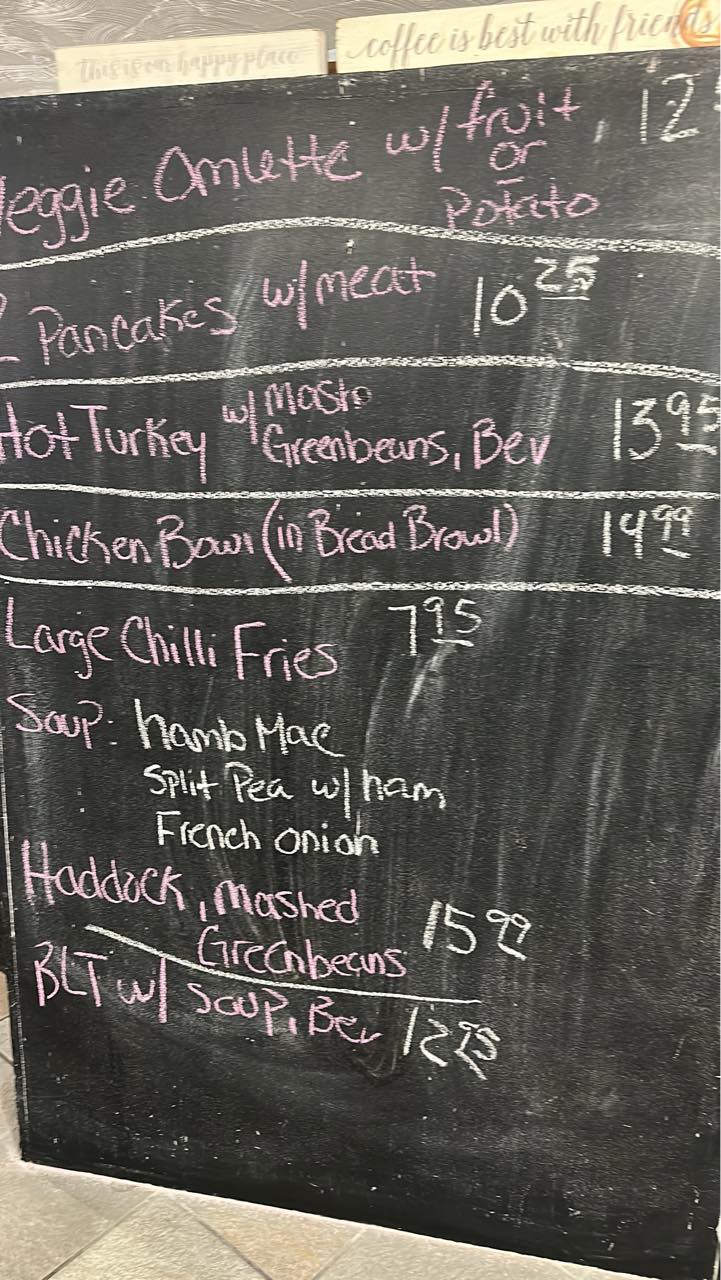 this is our happy place
coffee is best with friends
Veggie Omlette w/ fruit
or
Potato
12
2 Pancakes w/meat 10 25
Hot Turkey w/ Mash
Greenbeans, Bev 13 95
Chicken Bowl (in Bread Browl) 14 99
Large Chilli Fries 7 95
Soup: hamb Mac
Split Pea w/ ham
French onion
Haddock, Mashed
Greenbeans 15 99
BLT w/ soup, Bev 12 25